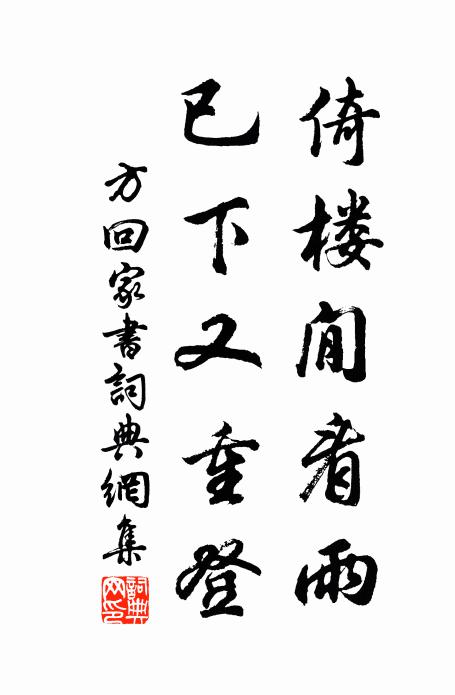 倚楼閒看雨
已下又重登
方回家書詞典網集
詞典網印